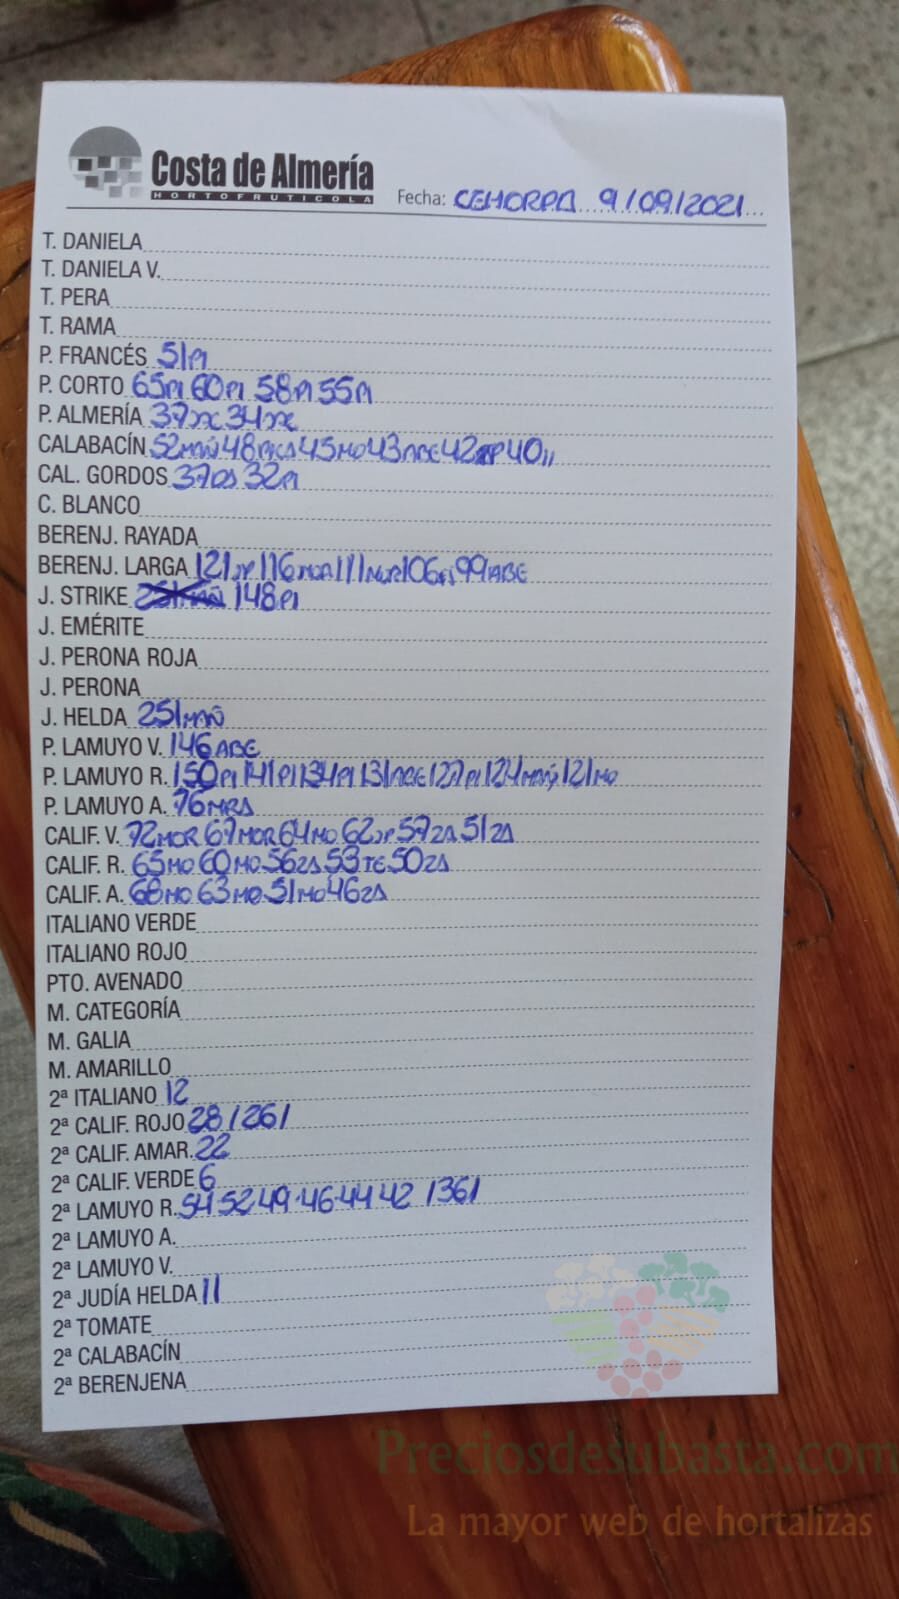 Costa de Almería
HORTOFRUTICOLA
Fecha: CEHORPA 9/09/2021
T. DANIELA
T. DANIELA V.
T. PERA
T. RAMA
P. FRANCÉS 51PI
P. CORTO 65PI 60PI 58PI 55PI
P. ALMERÍA 37 34
CALABACÍN 52MAÑ 48 45MO 43ABE 42 40 11
CAL. GORDOS 37 32PI
C. BLANCO
BERENJ. RAYADA
BERENJ. LARGA 121JP 116MOR 111MOR 106 99ABE
J. STRIKE 251MAÑ 148PI
J. EMÉRITE
J. PERONA ROJA
J. PERONA
J. HELDA 251MAÑ
P. LAMUYO V. 146ABE
P. LAMUYO R. 150PI 141PI 134PI 131ABE 127PI 124MAÑ 121MO
P. LAMUYO A. 76MRA
CALIF. V. 72MOR 67MOR 64MO 62JP 57ZA 51ZA
CALIF. R. 65MO 60MO 56ZA 53TE 50ZA
CALIF. A. 68MO 63MO 51MO 46ZA
ITALIANO VERDE
ITALIANO ROJO
PTO. AVENADO
M. CATEGORÍA
M. GALIA
M. AMARILLO
2ª ITALIANO 12
2ª CALIF. ROJO 28/26/
2ª CALIF. AMAR. 22
2ª CALIF. VERDE 6
2ª LAMUYO R. 54 52 49 46 44 42 /36/
2ª LAMUYO A.
2ª LAMUYO V.
2ª JUDÍA HELDA 11
2ª TOMATE
2ª CALABACÍN
2ª BERENJENA
Preciosdesubasta.com
La mayor web de hortalizas